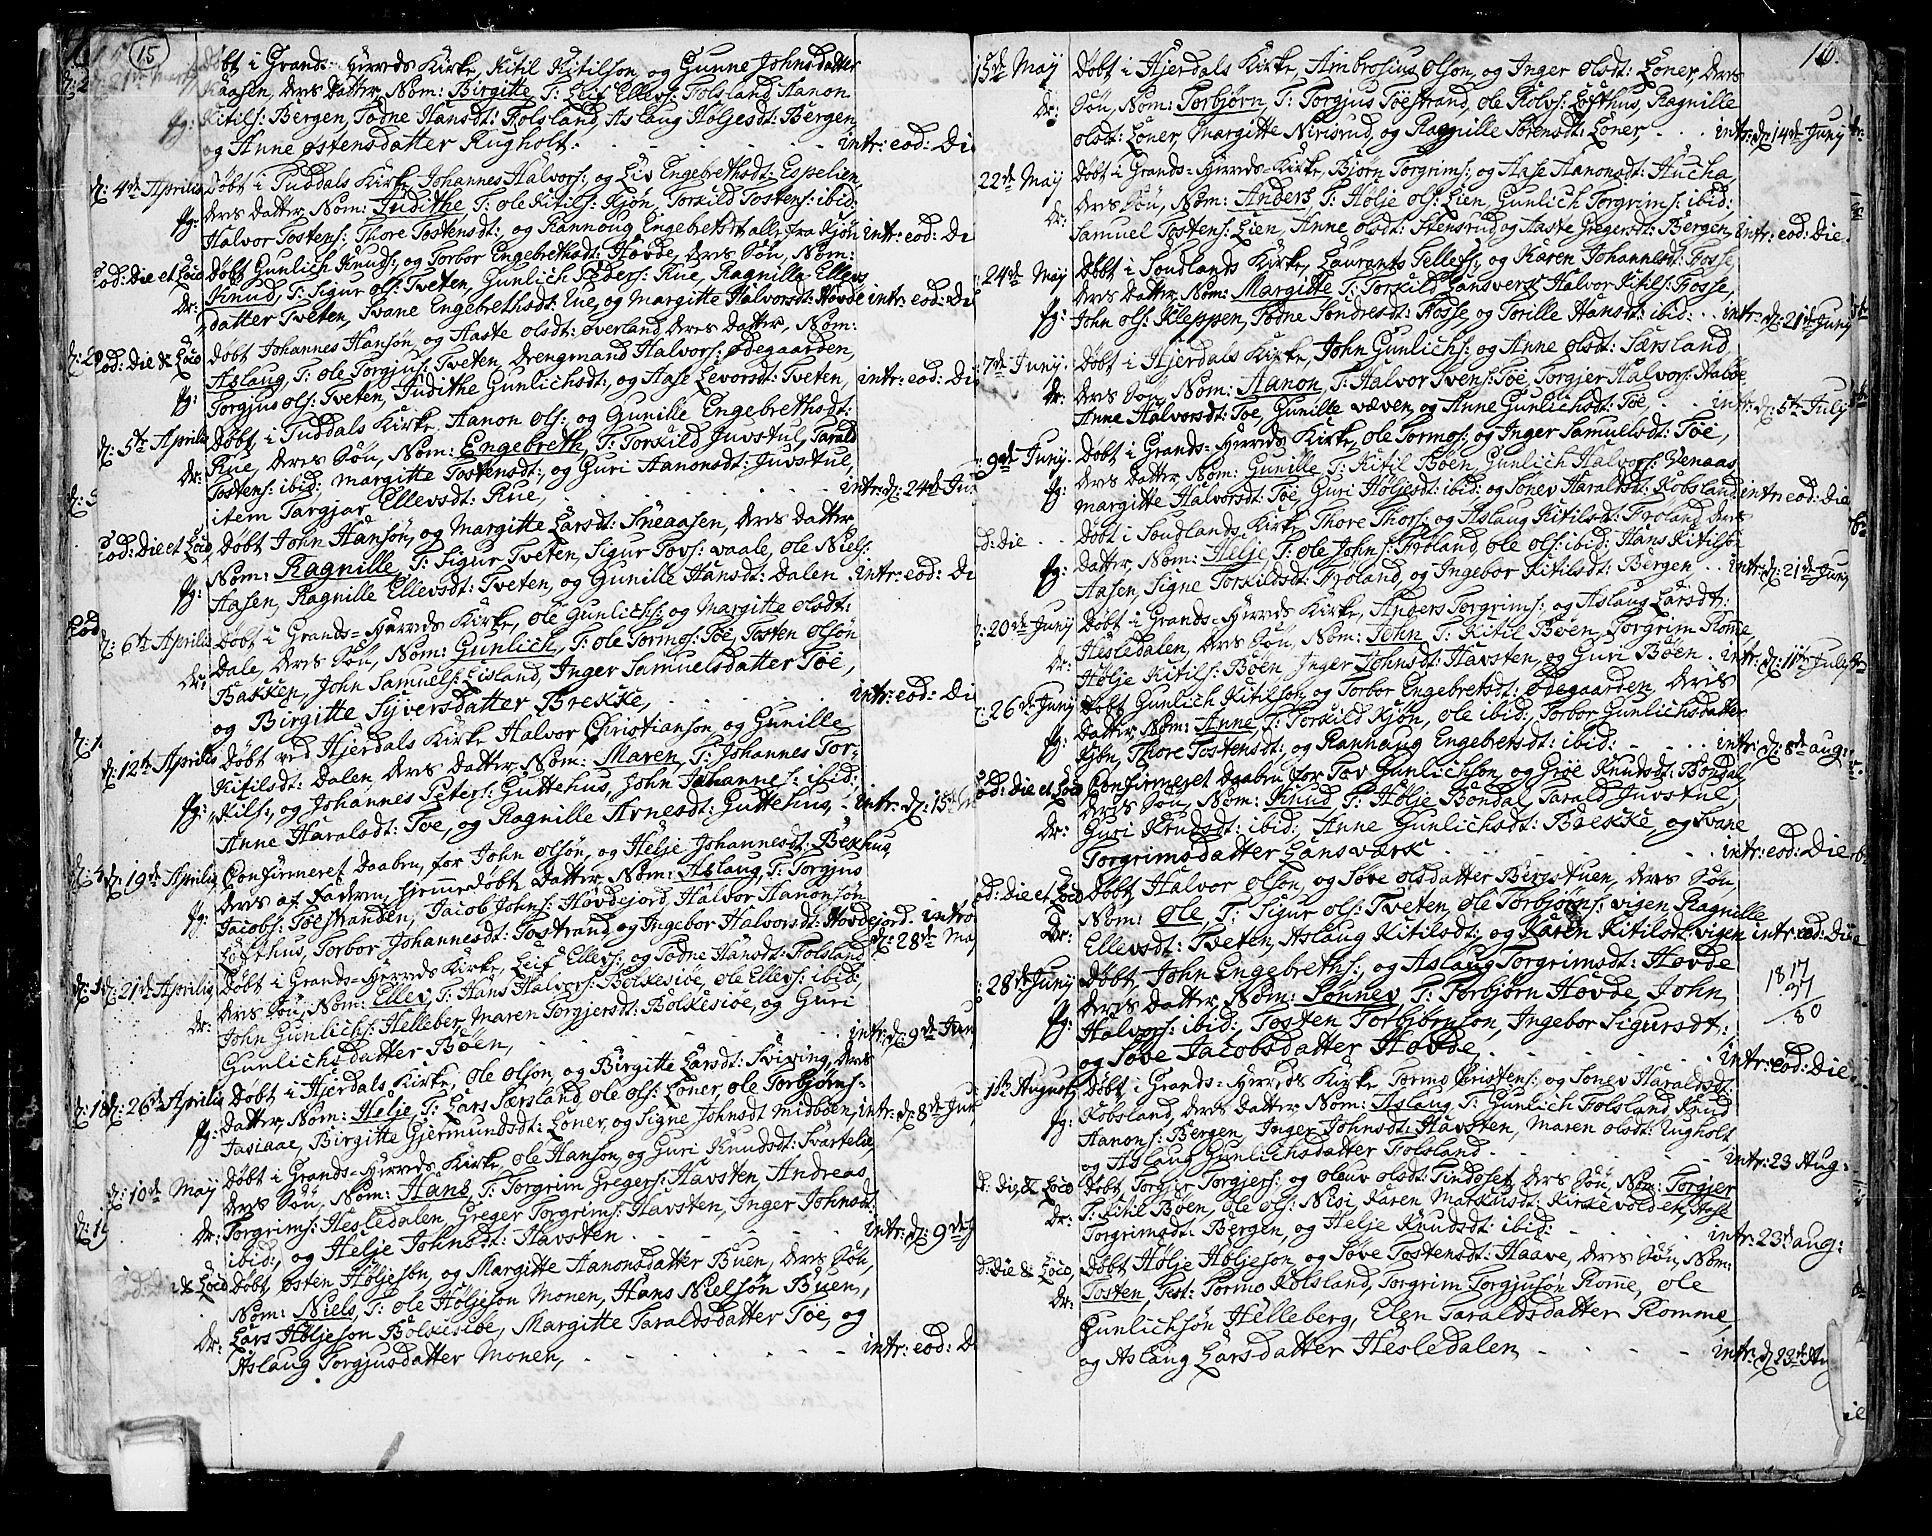 15
d: 21de Marty Døbt i Grands-Herreds Kirke, Kitil Kitilsøn, og Gunne Johnsdatter
Haasen, deres Datter, Nom: Birgitte T: Leif Ellevs: Folsland Aanon
pg: Kitils: Bergen, Tødne Hansdt: Folsland, Aslaug Høljesdt: Bergen,
og Anne Østensdatter Rugholt. intr: eod: Di
d: 4de Aprilis Døbt i Tuddals Kirke Johannes Halvors: og Liv Engebrethsdt: Espelien,
deres Datter, Nom: Judithe, T: Ole Kitils: Kjøn, Torkild Tostens: ibid:
pg: Halvor Tostens: Thore Tostensdt:, og Rannoug Engebretsdt alle fra Kjøn intr: eod: Di
Eod: Die et Loco Døbt Gunlich Knuds: og Torbor Engebrethsdt: Hovde, deres Søn, Nom:
Knud, T: Sigur Ols: Tveten, Gunlich Peders: Rue, Ragnille Ellevs
dr: datter Tveten, Svane Engebrethsdt: Rue, og Margitte Halvorsdt: Hovde intr: eod: Di
Eod: Die & Loco Døbt Johannes Hansøn, og Aaste Olsdt: Øverland, deres Datter, Nom:
Aslaug, T: Ole Torgjus: Tveten, Drengmand Halvors: Ødegaarden,
pg: Torgjus Ols: Tveten, Judithe Gunlichsdt:, og Aase Levorsdt: Tveten, intr: eod: Di
d: 5te Aprilis Døbt i Tuddals Kirke, Aanon Ols: og Gunille Engebrethsdt:
Rue, deres Søn, Nom: Engebreth, T: Torkild Juvstul, Tarald
dr: Tostens: ibid: Margitte Tostensdt:, og Guri Aanonsdt: Juvstul,
item Targjær Ellevsdt: Rue, intr: d: 24de Ju
Eod: Die et Loco Døbt John Hansøn, og Margitte Larsdt: Sneaasen, deres Datter,
Nom: Ragnille, T: Sigur Tveten, Sigur Tovs: Vaale, Ole Niels:
pg: Aasen, Ragnille Ellevsdt: Tveten, og Gunille Hansdt: Dalen intr: eod: Di
d: 6te Aprilis Døbt i Grands-Herreds Kirke, Ole Gunlichs: og Margitte Olsdt:
Dale, deres Søn, Nom: Gunlich, T: Ole Tormos: Tøe, Tosten Olsøn
dr: Bakken, John Samuels: Lisland, Inger Samuelsdatter Tøe,
og Birgitte Syversdatter Brekke, intr: eod: Di
d: 12te Aprilis Døbt ved Hjerdals Kirke Halvor Christiansøn, og Gunille
Kitilsdt: Dalen, deres Datter, Nom: Maren, T: Johannes Tor-
pg: kils: og Johannes Peters: Guttehus, John Johannes: ibid:
Anne Haralsdt: Tøe, og Ragnille Arnesdt: Guttehus, intr: d: 15de M
d: 19de Aprilis Confirmeret Daaben, for John Olsøn, og Helje Johannesdt: Bekhus,
deres af Faderen hjemmedøbt Datter, Nom: Aslaug, T: Torgjus
pg: Jacobs: Tøestranden, Jacob Johns: Hovdejord, Halvor Aanonsøn
Løfthus, Torbor Johannesdt: Tostrand, og Ingebor Halvorsdt: Hovdejord. introd:
d: 28de Maj
d: 21de Aprilis Døbt i Grands-Herreds Kirke, Leif Ellevs: og Tødne Hansdt: Folsland
deres Søn, Nom: Ellev, T: Hans Halvors: Bolkesiøe, Ole Ellevs: ibid:
dr: John Gunlichs: Helleber, Maren Torgjersdt: Bolkesiøe, og Guri
Gunlichsdatter Bøen, intr: d: 9de Jun
d: 26de Aprilis Døbt i Hjerdals Kirke, Ole Olsøn, og Birgitte Larsdt: Sviving, deres
Datter, Nom: Helje, T: Lars Særsland, Ole Ols: Løner, Ole Torbjørns:
pg: Jasiaae, Birgitte Gjermundsdt: Løner, og Signe Johnsdt Midbøen, intr: d: 8de Jun
d: 10de Maij Døbt i Grands-Herreds Kirke, Ole Hansøn, og Guri Knudsdt: Svartelie,
deres Søn, Nom: Hans, T: Torgrim Gregers: Havsten, Andreas
dr: Torgrims: Hesledalen, Greger Torgrims: Havsten, Inger Johnsdt:
ibid:, og Helje Johnsdt: Havsten intr: d: 9de J
Eod: Die & Loco Døbt Østen Høljesøn, og Margitte Aanonsdatter Buen, deres Søn,
Nom: Niels, T: Ole Høljesøn Monen, Hans Nielsøn Buen,
dr: Lars Høljesøn Bolkesiøe, Margitte Taraldsdatter Tøe, og
Aslaug Torgjusdatter Monen, intr: eod: D
16.
15de Maij Døbt i Hjerdals Kirke, Ambrosius Olsøn, og Inger Olsdt: Løner, deres
dr: Søn, Nom: Torbjørn, T: Torgjus Tøestrand, Ole Rolvs: Løfthus, Ragnille
Olsdt: Løner, Margitte Nirisrud, og Ragnille Sørensdt: Løner, intr: d: 14de Junij
22de Maij Døbt i Grands-Herreds-Kirke, Bjørn Torgrims: og Aase Aanonsdt: Hucha,
dr: deres Søn, Nom: Anders, T: Hølje Ols: Lien, Gunlich Torgrims: ibid:
Samuel Tostens: Lien, Anne Olsdt: Stensrud og Aaste Gregersdt: Bergen, intr: eod: Die
24de Maij Døbt i Soudlands Kirke, Laurants Tellefs: og Karen Johannesdt: Fosse,
deres Datter, Nom: Margitte T: Torkild Lansverk, Halvor Kitils: Fosse,
pg: John Ols: Kleppen, Tødne Søndresdt: Fosse, og Torille Hansdt: ibid: intr: d: 21de Junij
7de Junij Døbt i Hjerdals Kirke, John Gunlichs: og Anne Olsdt: Særsland,
dr: deres Søn, Nom: Aanon, T: Halvor Svens: Tøe, Torgjer Halvors: Haloe,
Anne Halvorsdt: Tøe, Gunille Væven, og Anne Gunlichsdt: Tøe, intr: d: 5te July
9de Junij Døbt i Grands-Herreds Kirke, Ole Tormos: og Inger Samuelsdt: Tøe,
deres Datter, Nom: Gunille, T: Kitil Bøen, Gunlich Halvors: Venaas
pg: Margitte Halvorsdt: Tøe, Guri Høljesdt: ibid: og Sønev Haraldsdt: Kobsland intr: eod: Die
Eod: Die Døbt i Soudlands Kirke, Thore Thors: og Aslaug Kitilsdt: Froland, deres
Datter, Nom: Helje, T: Ole Johns: Froland, Ole Ols: ibid: Hans Kitils:
pg: Aasen, Signe Torkildsdt: Froland, og Ingebor Kitilsdt: Bergen intr: d: 21de Junij
d: 20de Junij Døbt i Grands-Herreds Kirke, Anders Torgrims: og Aslaug Larsdt:
dr: Hesledalen, deres Søn, Nom: John, T: Kitil Bøen, Torgrim Rome,
Hølje Kitils: Bøen, Inger Johnsdt: Havsten, og Guri Bøen intr: d: 11te July
d: 26de Junij Døbt Gunlich Kitilsøn, og Torbor Engebretsdt: Ødegaarden, deres
Datter, Nom: Anne, T: Torkild Kjøn, Ole ibid: Torbor Gunlichsdatter
pg: Kjøn, Thore Tostensdt: og Rannaug Engebretsdt: ibid: intr: d: 8de Aug:
Eod: Die et Loco Confirmeret Daaben for Tov Gunlichsøn, og Grøe Knudsdt: Bondal,
deres Søn, Nom: Knud, T: Hølje Bondal, Tarald Juvstul,
dr: Guri Knudsdt: ibid: Anne Gunlichsdt: Brekke og Svane
Torgrimsdatter Lansværk intr: eod: Die
Eod: Die et Loco Døbt Halvor Olsøn, og Søve Olsdatter Bergstuen, deres Søn,
dr: Nom: Ole, T: Sigur Ols: Tveten, Ole Torbjørns: Vigen, Ragnille
Ellevsdt: Tveten, Aslaug Kitilsdt: og Karen Kitilsdt: Vigen intr: eod: Die
28de Junij Døbt, John Engebreths: og Aslaug Torgrimsdt: Hovde
deres Datter, Nom: Sønnev, T: Torbjørn Hovde, John
pg: Halvors: ibid: Tosten Torbjørnsøn, Ingebor Sigursdt:
og Søve Jacobsdatter Hovde, intr: eod: Die
1817
37
80
1ste Augusti Døbt i Grands-Herreds Kirke Tormo Christens: og Sønev Haraldsdt:
pg: Kobsland, deres Datter, Nom: Aslaug, T: Gunlich Folsland, Knud
Aanons: Bergen, Inger Johnsdt: Havsten, Maren Olsdt: Rugholt
og Aslaug Gunlichsdatter Folsland intr: 23 Aug:
Eod: Die & Loco Døbt Torgjer Torgjers: og Oleuv Olsdt: Tindoset, deres Søn, Nom: Torgjer
dr: T: Kitil Bøen, Ole Ols: Nisi, Karen Markusdt: Kirkevolden, Aase
Torgrimsdt: Bergen, og Helje Knudsdt: ibid: intr: 23de Aug:
Eod: Die & Loco, Døbt Hølje Høljesøn, og Søve Tostensdt: Haave, deres Søn, Nom:
dr: Tosten, Test: Tormo Kolsland, Torgrim Torgjusøn Rome, Ole
Gunlichsøn Helleberg, Elen Taraldsdatter Romme,
og Aslaug Larsdatter Hesledalen intr: d: 23de Au